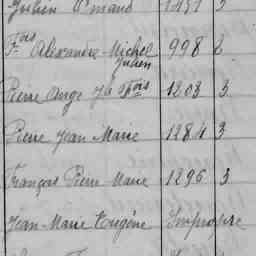 Julien Armand 1451 3
Fois Alexandre Michel 998 2
Julien
Pierre Ange Jh Fois 1203 3
Pierre Jean Marie 1284 3
François Pierre Marie 1296 3
Jean-Marie Eugène Impropre